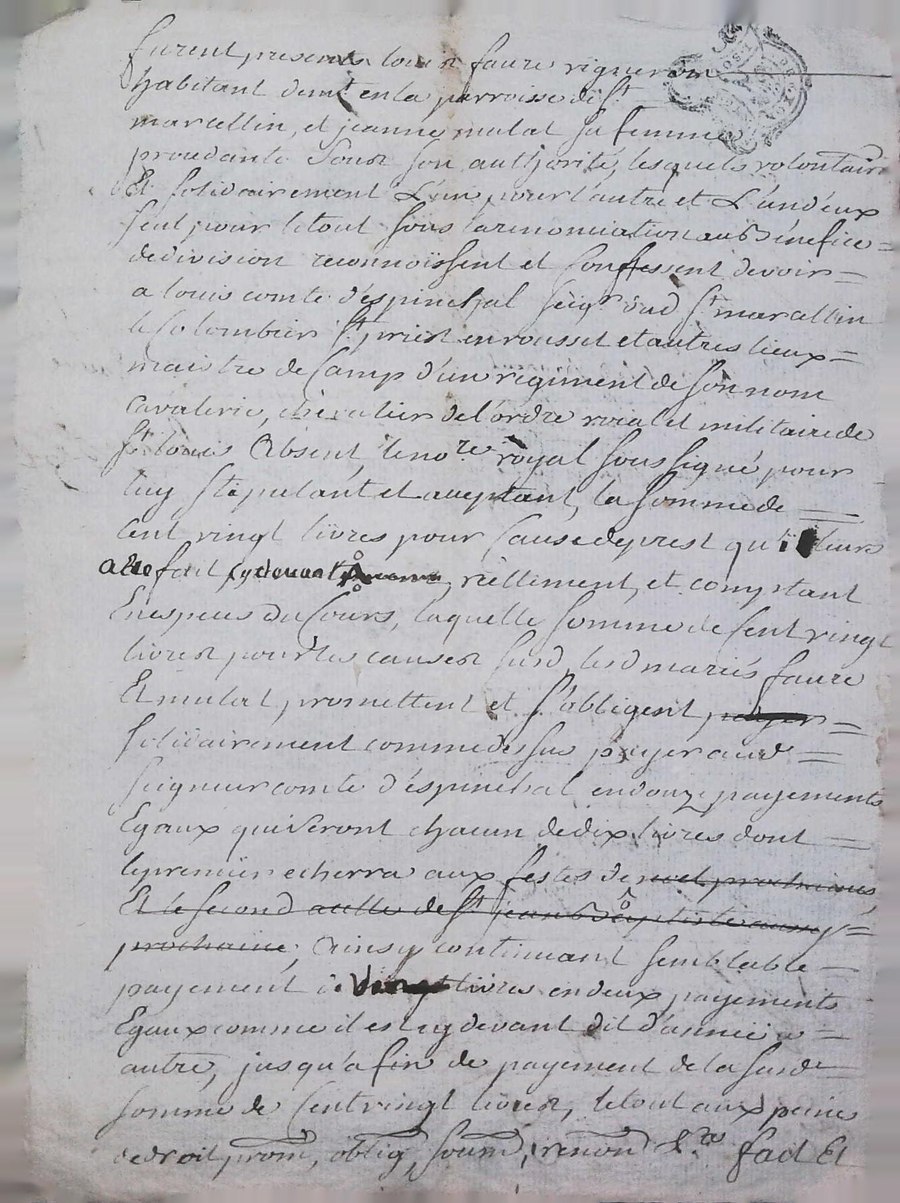 furent presens louis faure vigneron
habitant demt en la parroisse de St
marcellin, et jeanne malat sa femme
procedante sous son authorité, lesquels volontaire
Et solidairement L'un pour l'autre et L'un deux
seul pour le tout sous la renonciation au Bénéfice =
de division reconnoissent et confessent devoir =
a louis comte d'espinchal seigr dud St marcellin
le Colombier St priest en rousset et autres lieux =
maistre de Camp d'un regiment de son nom
Cavalerie, chevalier de l'ordre roial et militaire de
St louis Absent le nore royal soussigné pour
luy stipulant et aceptant, la somme de
Cent vingt livres pour Cause de prest qu'il leurs
a esté fait cy devant réellement, et comptant
En espèces du Cours, laquelle somme de Cent vingt
livres pour les causes susd, lesd mariés faure
Et malat, promettent et s'obligent payer =
solidairement comme dessus payer aud =
seigneur comte d'espinchal en douze payements
Egaux qui seront chacun de dix livres dont =
le premier echerra aux festes de noel prochaines
Et le second a celle de St jean Baptiste aussy =
prochaine, Ainsy continuant semblable =
payement de vingt livres en deux payements
Egaux comme il est cy devant dit d'année a =
autre, jusqu'a fin de payement de la susd
somme de Cent vingt livres, le tout aux peine
de droit, prom, oblig, soum, renon &ra fait Et